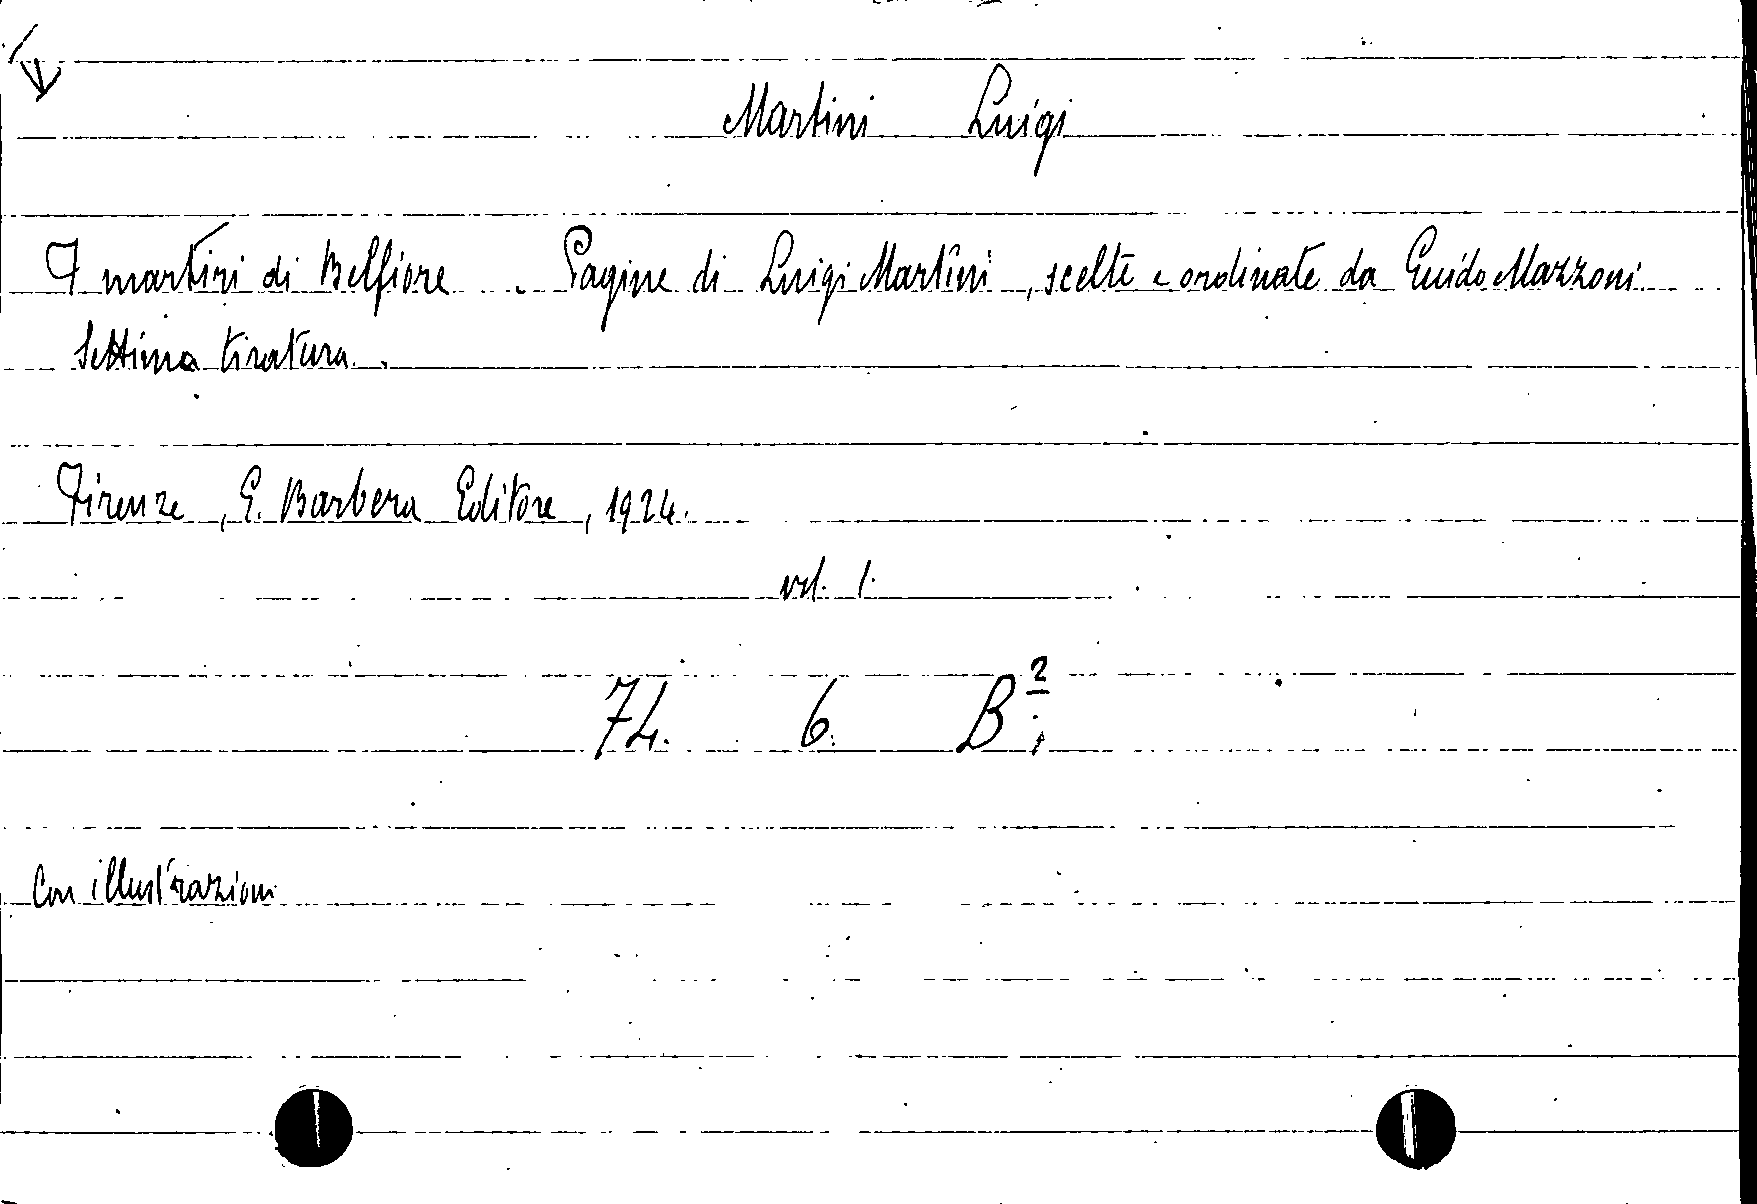 Martini Luigi
I martiri di Belfiore . Pagine di Luigi Martini , scelte e ordinate da Guido Mazzoni
Settima tiratura .
Firenze , G. Barbera Editore , 1924.
vol. 1.
74. 6. B²;
Con illustrazioni